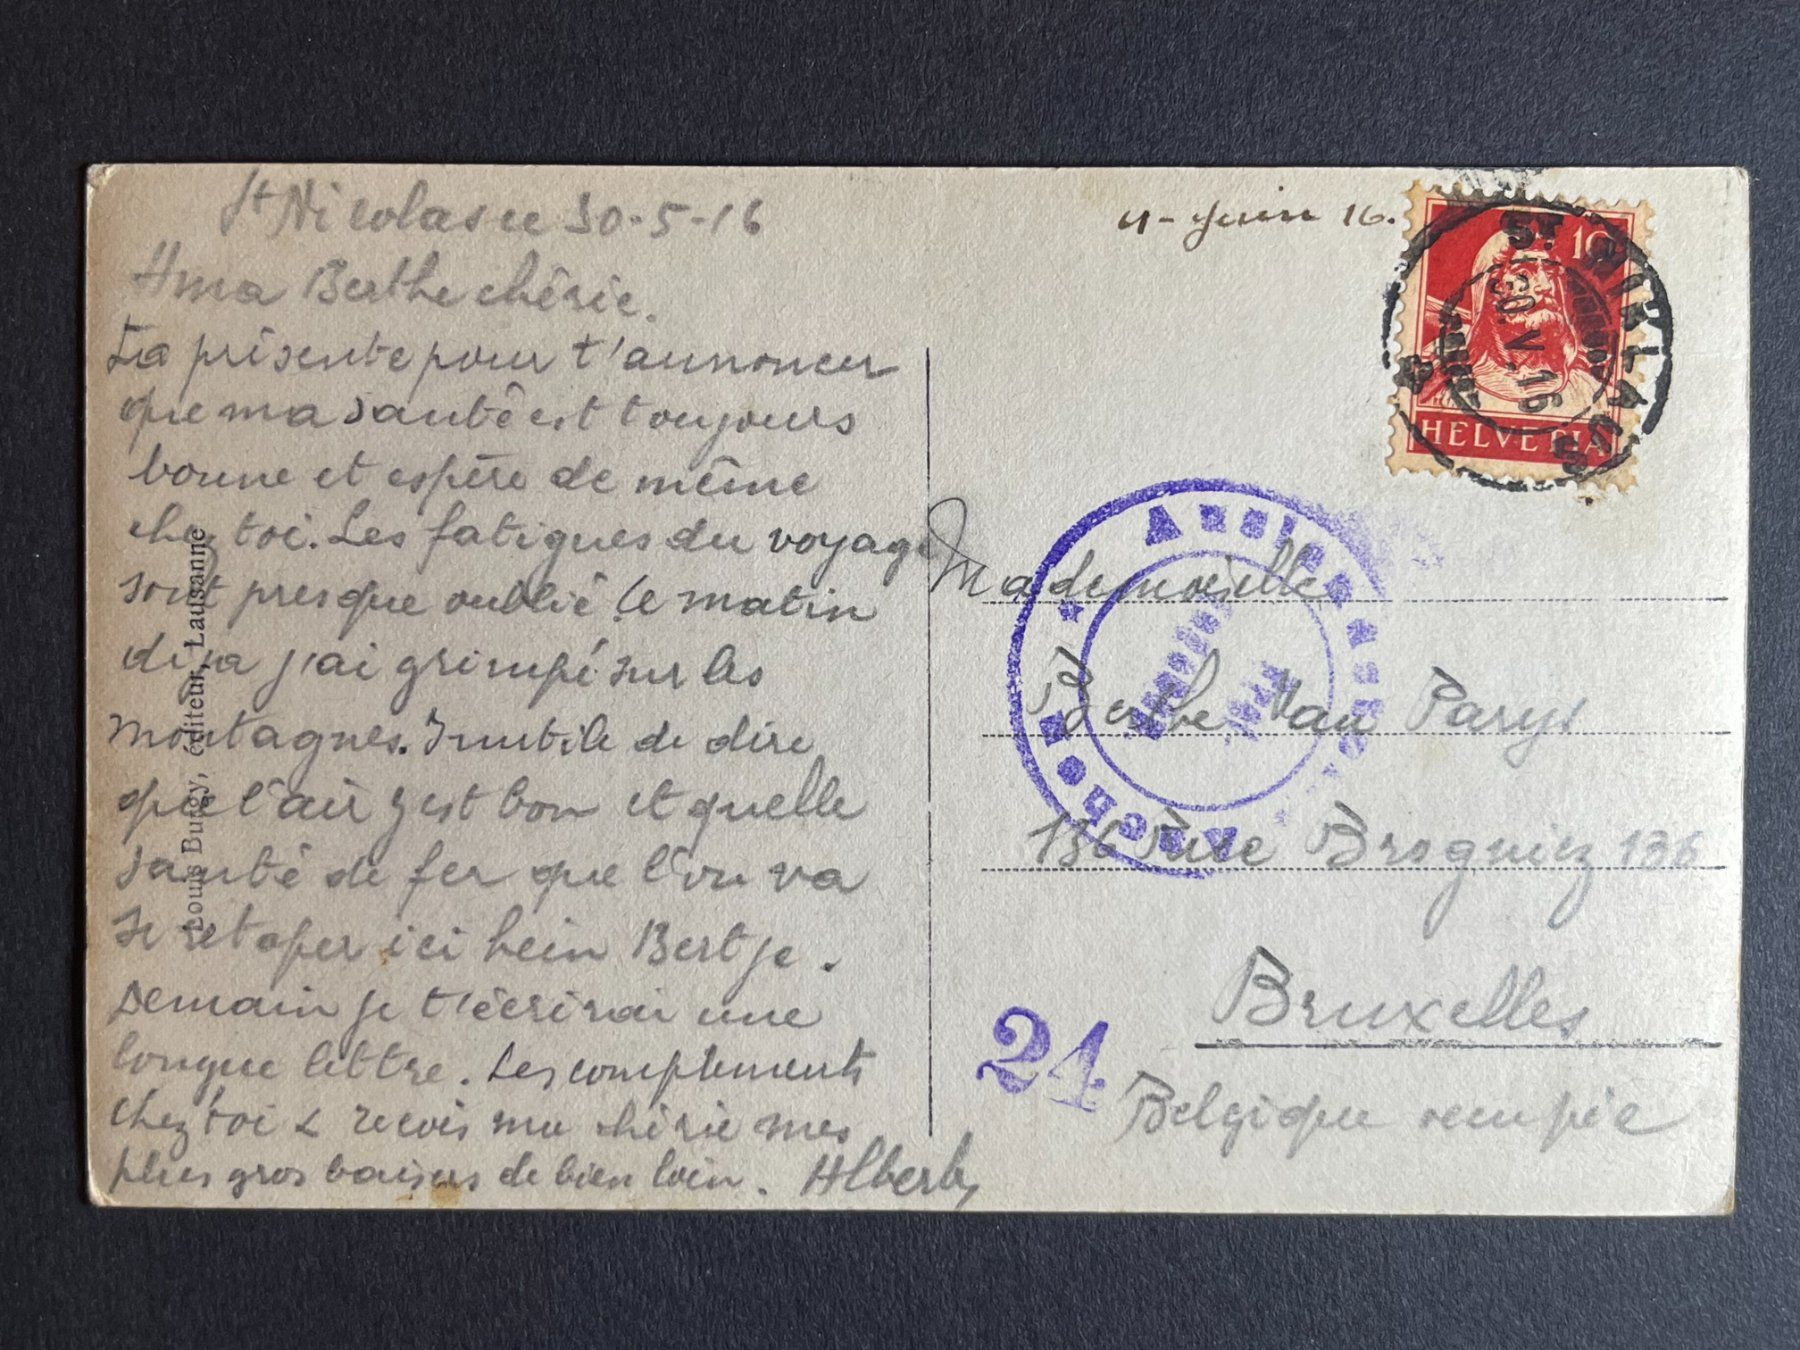 St Nicolasee 30-5-16
A ma Berthe chérie.
La présente pour t'annoncer
que ma santé est toujours
bonne et espère de même
chez toi. Les fatigues du voyage
sont presque oublié. Ce matin
déja j'ai grimpé sur les
montagnes. Inutile de dire
que l'air y est bon et quelle
santé de fer que l'on va
se retaper ici hein Bertje.
Demain je t'écrirai une
longue lettre. Les complements
chez toi & recois ma chérie mes
plus gros baisers de bien loin. Albert
Louis Bugy, éditeur, Lausanne
4 - Juin 16.
10
HELVETIA
ST NIKLAUS
30.V.16
Mademoiselle
Berthe Van Parys
136 Rue Brogniez 136
Bruxelles
Belgique occupée
Auslandsstelle
Aachen
24